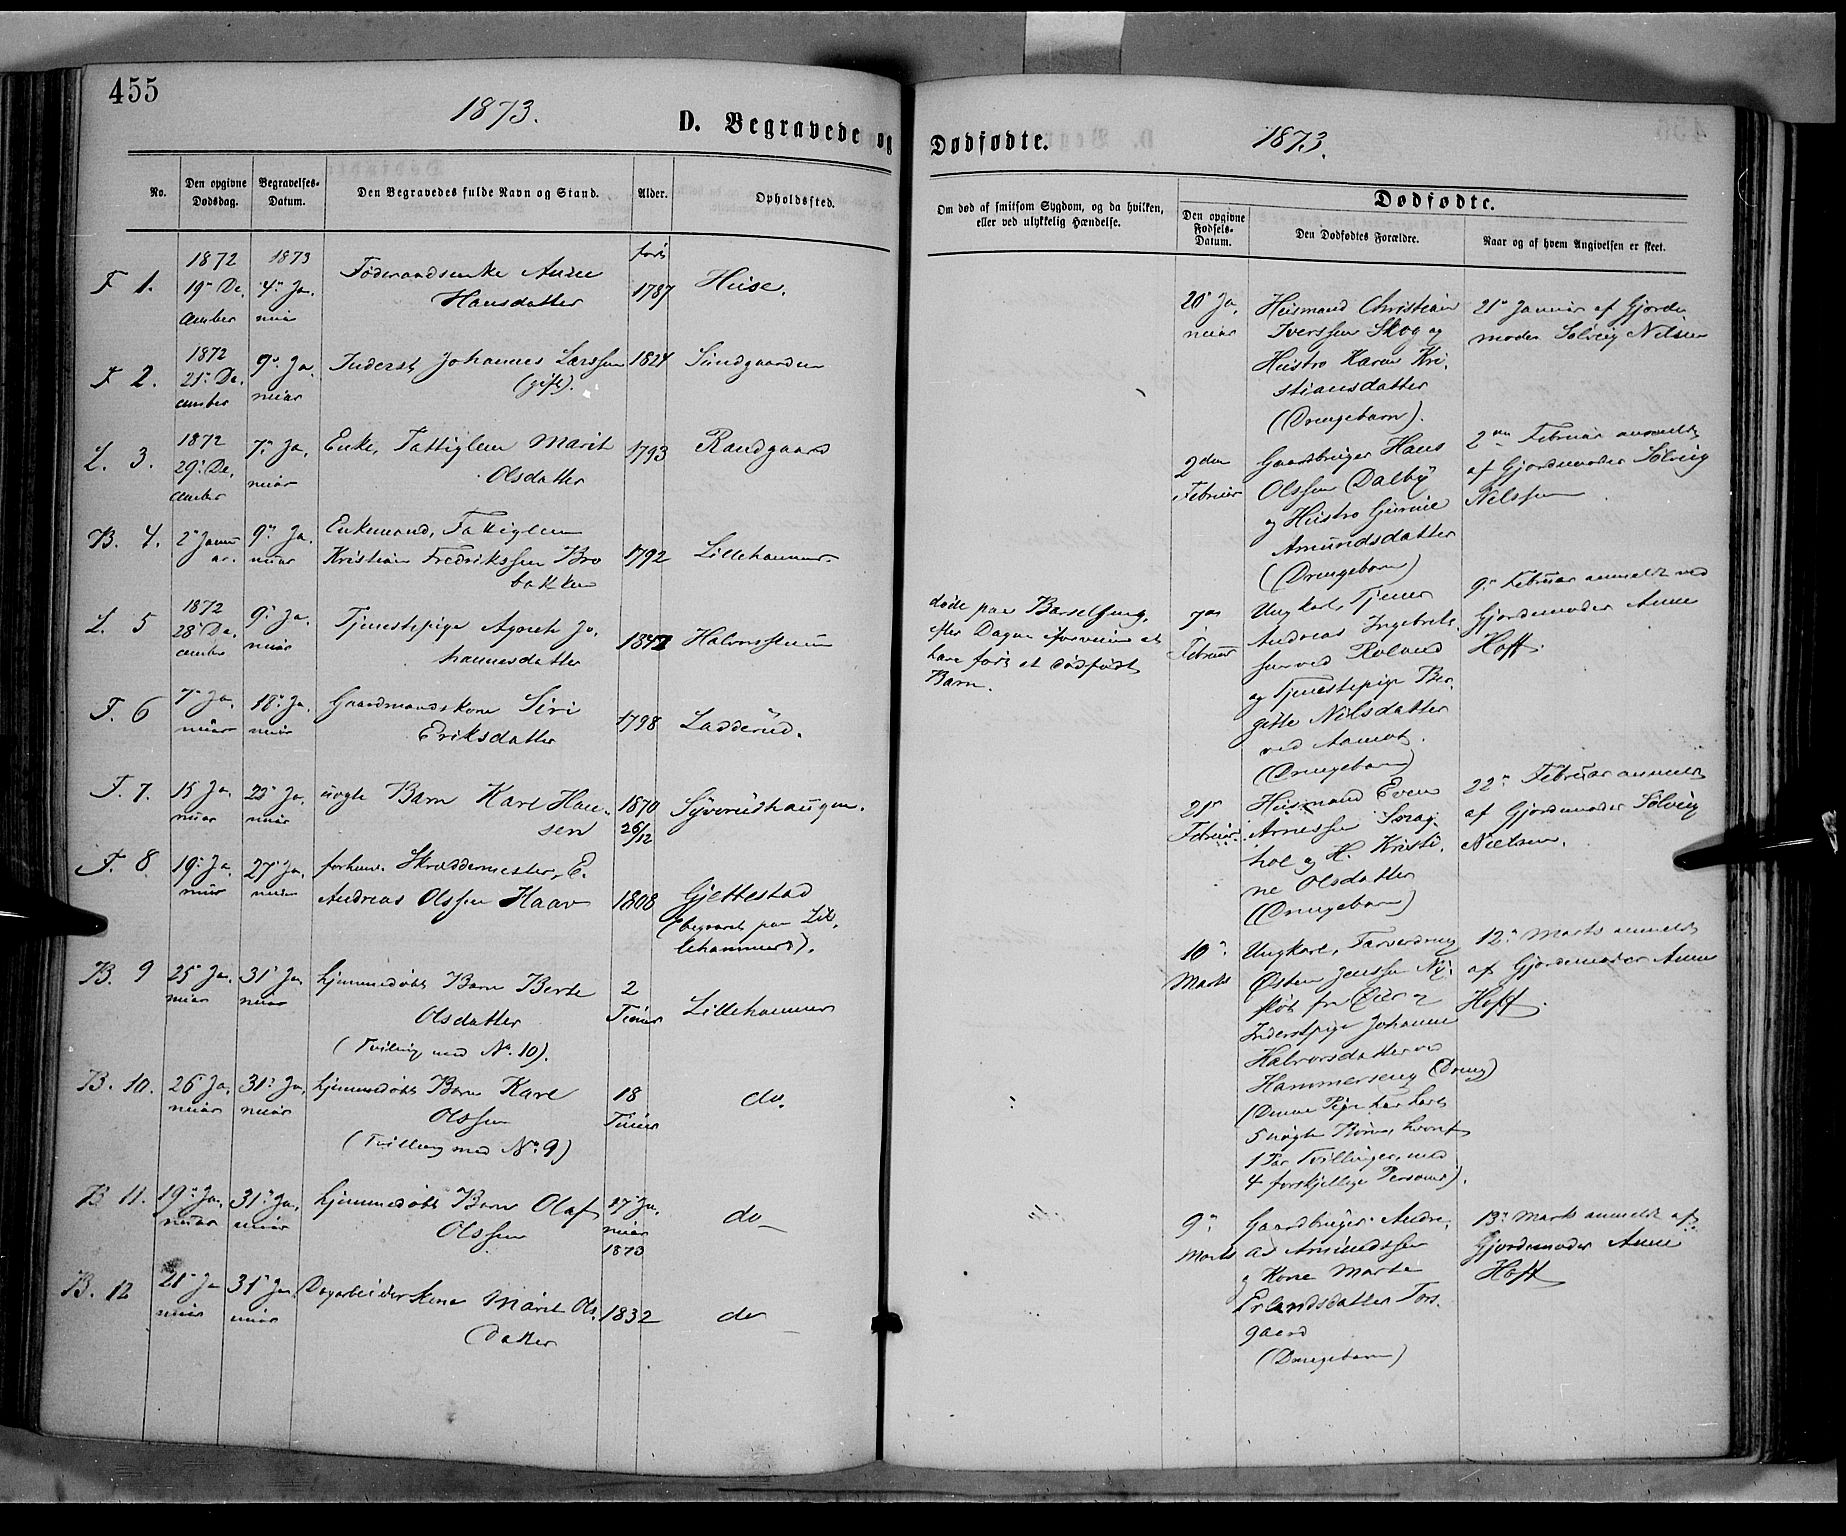 455
1873.
D. Begravede og
No.
Den opgivne Dødsdag.
Begravelses-Datum.
Den Begravedes fulde Navn og Stand.
Alder.
Opholdssted.
F 1.
1872 19de De, cember
1873 4de Ja, nuar
Føderaadsenke Anne
Hansdatter
født 1787
Huse.
F 2.
1872 21de De, cember
9de Ja, nuar
Inderst Johannes Larssen
(gift).
1824
Sundgaarden
L. 3.
1872 29de De, cember
7de Ja, nuar
Enke, Fattiglem Marit
Olsdatter
1793
Randgaard
B. 4.
2de Janu ar.
9de Ja, nuar
Enkemand, Fattiglem
Kristian Fredrikssen Bro
bakken
1792
Lillehammer
L. 5
1872 28de De, cember
9de Ja, nuar
Tjenestepige Agnete Jo,
hannesdatter
1847
F. 6
7de Ja, nuar
18de Ja, nuar
Gaardmandskone Siri
Eriksdatter
1798
Ladderud.
F. 7.
15 Ja, nuar
25de Ja, nuar
uægte Barn Karl Han-
sen
1870 26/12
Syverudhaugen.
F. 8.
19de Ja, nuar
27de Ja, nuar
forhenv. Skræddermester, E.
Andreas Olssen Haav
1808
Gjettestad
(begravet paa Lil,
lehammer).
B. 9
25de Ja, nuar
31de Ja, nuar
hjemmedøbt Barn Berte
Olsdatter
(Tvilling med No. 10).
2 Timer
Lillehammer
B. 10.
26de Ja, nuar
31de Ja, nuar
hjemmedøbt Barn Karl
Olssen
(Tvilling med No. 9)
18 Timer
do.
B 11.
19de Ja, nuar
31de Ja, nuar
hjemmedøbt Barn Olaf
Olssen
17de Ja, nuar 1873
do
B. 12
21de Ja nuar
31de Ja, nuar
Dagarbeiderkone Marit Ols
datter
1832
do
Dødfødte.
1873.
Om død af smitsom Sygdom, og da hvilken,
eller ved ulykkelig Hændelse.
Dødfødte.
Den opgivne Fødsels-Datum.
Den Dødfødtes Forældre.
Naar og af hvem Angivelsen er skeet.
døde paa Barselseng,
efter Dagen forveien at
have født et dødfødt
Barn.
20de Ja, nuar
Husmand Christian
Iverssen Skog og
Hustro Karen Kri,
stiansdatter
(Drengebarn).
21de Januar af Gjorde
moder Sølvig Nilsen
2den Februar
Gaardbruger Hans
Olssen Dalby
og Hustro Gurine
Amundsdatter
(Drengebarn)
2den Februar anmeldt
af Gjordemoder Sølvig
Nilssen.
7de Februar
Ungkarl, Tjener
Andreas Ingebrigt,
sen ved Roland
og Tjenestepige Ber,
gitte Nilsdatter
ved Aamot.
(Drengebarn)
9de Februar anmeldt ved
Gjordemoder Anne
Hoff.
21de Februar.
Husmand Even
Arnessen
hol og H. Kristi,
ne Olsdatter
(Drengebarn)
22de Februar anmeldt
af Gjordemoder Sølvig
Nielsen.
10de Marts
Ungkarl, Farverdreng
Østen Jenssen Ny,
fløt fra Øier og
Inderstpige Johanne
Halvorsdatter ved
Hammerseng (Dreng)
(Denne Pige har havt
5 uægte Børn, hvoraf
1 Par Tvillinger, med
4 forskjellige Personer).
12de Marts anmeldt
af Gjordemoder Anne
Hoff.
9de Marts
Gaardbruger Andre,
as Amundssen
og Kone Marte
Erlandsdatter Tors.
gaard
(Drengebarn)
13de Marts anmeldt af
Gjordemoder Anne
Hoff